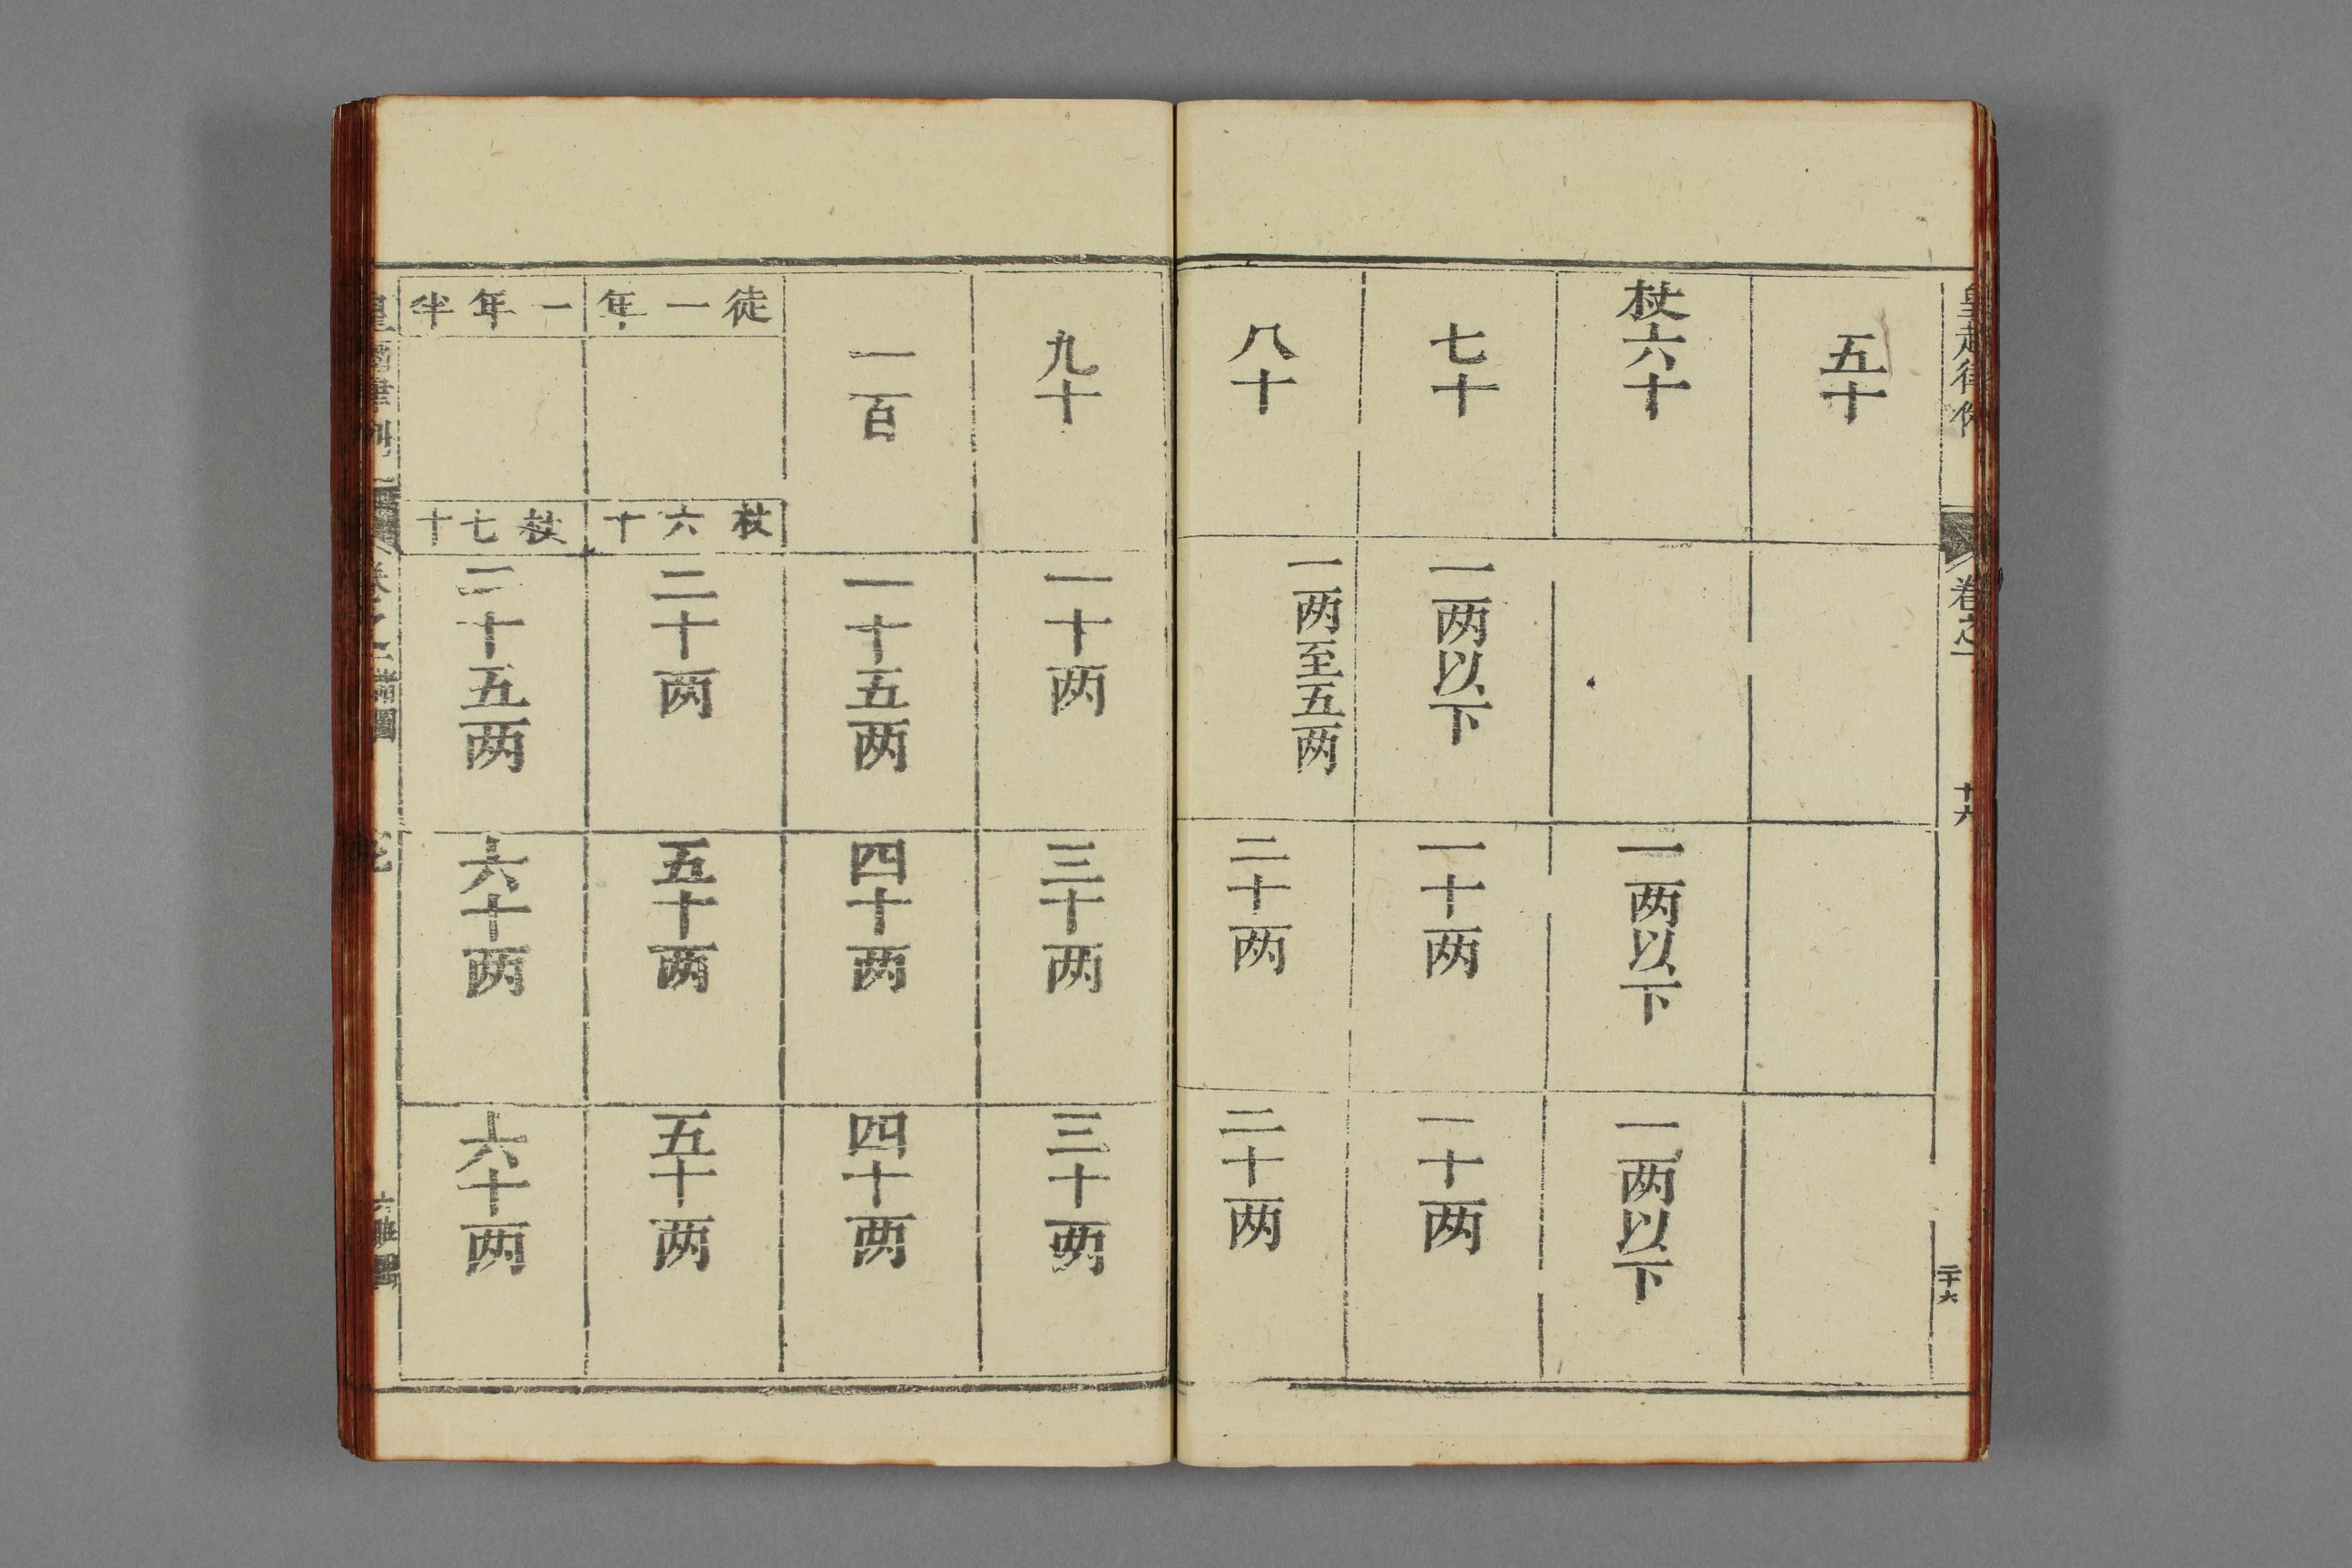 皇越律例
卷之一
十六
二十六
五十
杖六十
一两以下
一两以下
七十
一两以下
一十两
一十两
八十
一两至五两
二十两
二十两
九十
一十两
三十两
三十两
一百
一十五两
四十两
四十两
徒一年
杖六十
二十两
五十两
五十两
一年半
杖七十
二十五两
六十两
六十两